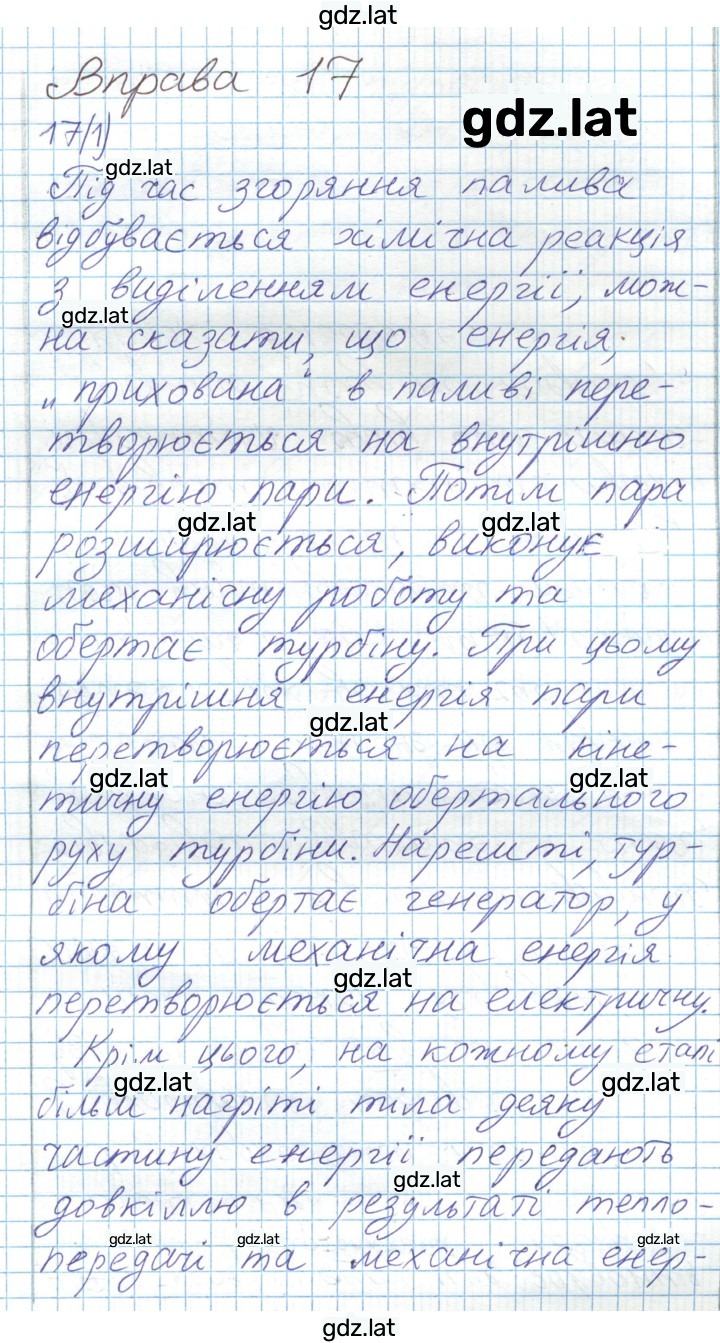 gdz.lat
Вправа 17
gdz.lat
17(1)
gdz.lat
Під час згоряння палива
відбувається хімічна реакція
з виділенням енергії, мож-
gdz.lat
на сказати, що енергія,
„прихована“ в паливі пере-
творюється на внутрішню
енергію пари. Потім пара
gdz.lat gdz.lat
розширюється, виконує
механічну роботу та
обертає турбіну. При цьому
внутрішня енергія пари
gdz.lat
перетворюється на кіне-
gdz.lat gdz.lat
тичну енергію обертального
руху турбіни. Нарешті, тур-
біна обертає генератор, у
якому механічна енергія
gdz.lat
перетворюється на електричну.
Крім цього, на кожному етапі
gdz.lat gdz.lat
більш нагріті тіла деяку
частину енергії передають
gdz.lat
довкіллю в результаті тепло-
gdz.lat gdz.lat gdz.lat
передачі та механічна енер-
gdz.lat